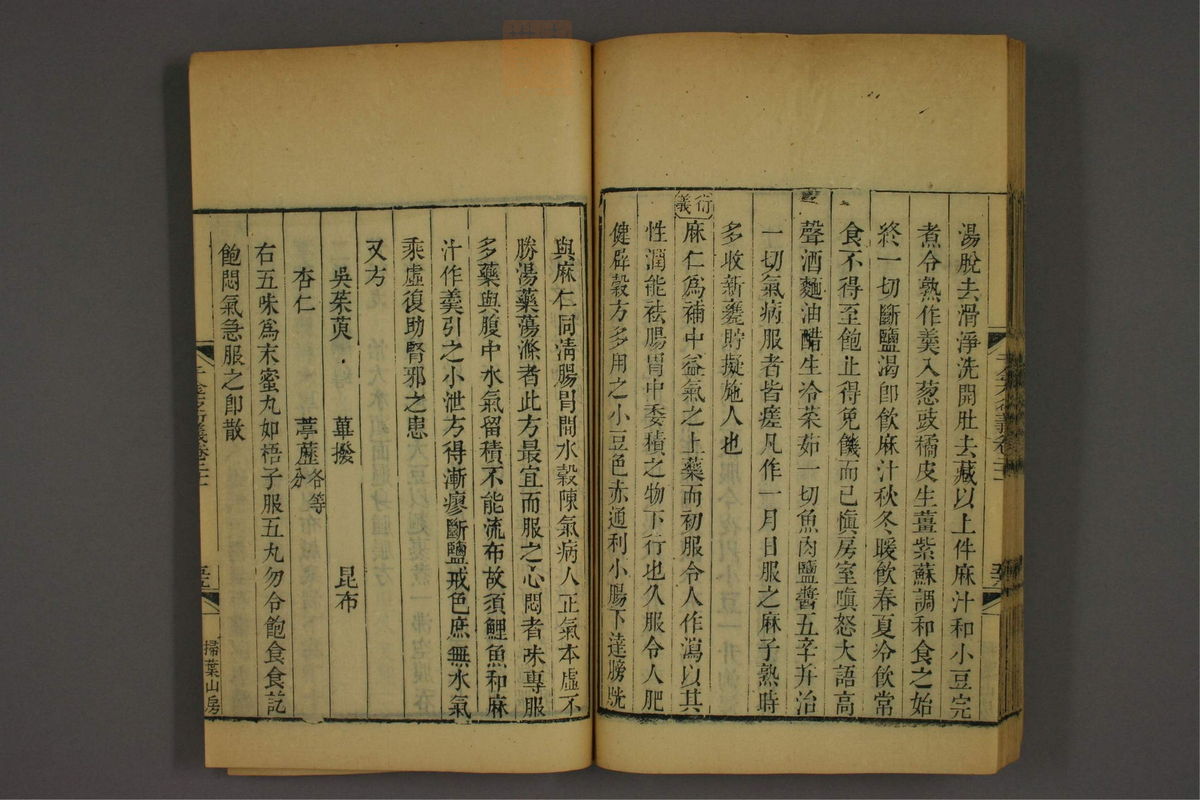 湯脫去滑淨洗開肚去藏以上件麻汁和小豆完
煮令熟作羹入葱豉橘皮生薑紫蘇調和食之始
終一切斷鹽渴卽飲麻汁秋冬暖飲春夏冷飲常
食不得至飽止得免饑而已愼房室嗔怒大語高
聲酒麵油醋生冷菜茹一切魚肉鹽醬五辛幷治
一切氣病服者皆瘥凡作一月日服之麻子熟時
多收新甕貯擬施人也
衍義
麻仁爲補中益氣之上藥而初服令人作瀉以其
性潤能祛腸胃中委積之物下行也久服令人肥
健辟穀方多用之小豆色赤通利小腸下達膀胱
與麻仁同淸腸胃間水穀陳氣病人正氣本虛不
勝湯藥蕩滌者此方最宜而服之心悶者味專服
多藥與腹中水氣留積不能流布故須鯉魚和麻
汁作羹引之小泄方得漸瘳斷鹽戒色庶無水氣
乘虛復助腎邪之患
又方
吳茱萸 蓽撥 昆布
杏仁 葶藶各等分
右五味爲末蜜丸如梧子服五丸勿令飽食食訖
飽悶氣急服之卽散
掃葉山房